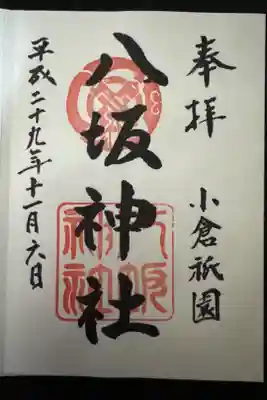 奉拝
小倉祇園
八坂神社
八坂
神社
平成二十九年十一月六日